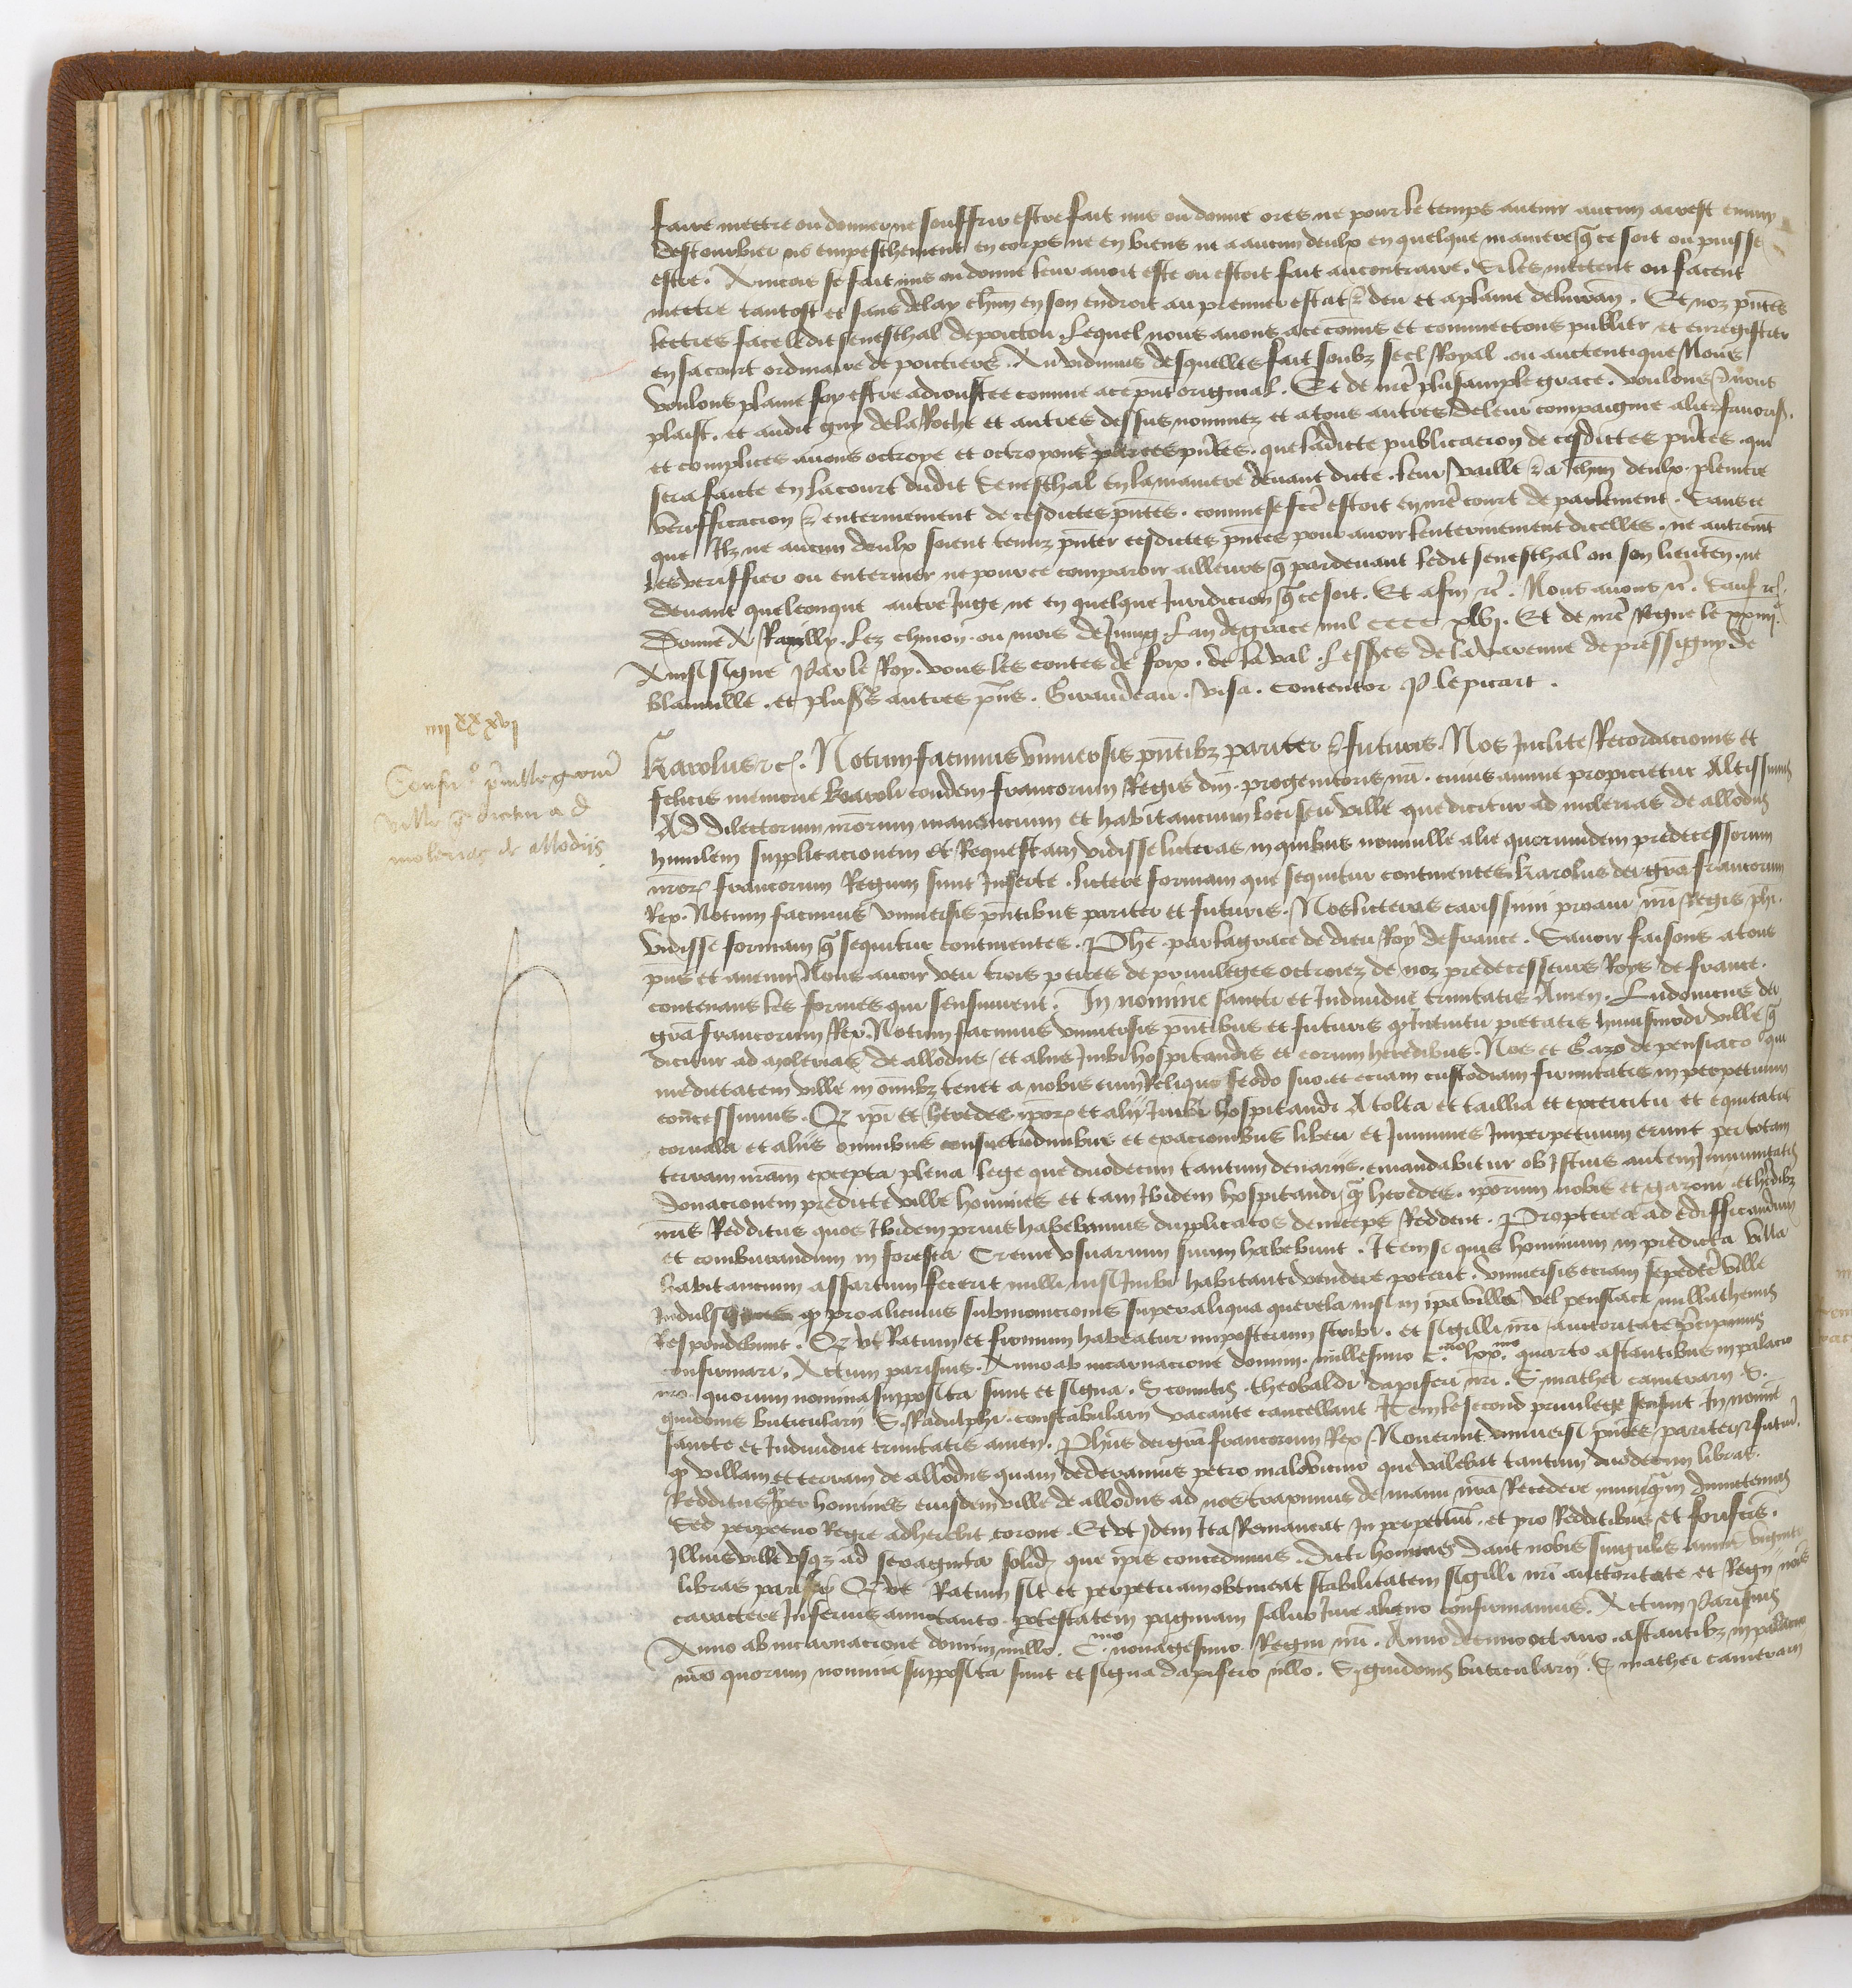 faire mettre ou donner ne souffrir estre fait mis ou donné ores ne pour le temps avenir aucun arrest ennuy
destourbier ne empeschement en corps ne en biens ne a aucun deulx en quelque maniere q̃ ce soit ou puisse
estre. Aincois se fait mis ou donné leur avoit esté ou estoit fait au contraire. Si les mettent ou facent
mettre tantost et sans delay ch̃un en son endroit au premier estat & deu et a plaine delivrañ. Et noz pñtes
lettres face ledit seneschal de poictou. Lequel nous avons a ce cõmis et commettons publier et enregistrer
en sa court ordinaire de poictiers. Au vidimus desquelles fait soubz seel Royal. ou auctentique Nous
voulons plaine foy estre adjoustee comme a ce pñt original. Et de nr̃e plus ample grace. voulons & nous
plaist. et audit guy de la Roche et autres dessus nommez et a tous autres de leur compaignie aliez favoris.
et complices avons octroyé et octroyons par ces pñtes. que ladicte publicacion de cesdictes pñtes. qui
sera faicte en la court dudit Seneschal en la maniere devant dicte. leur vaille & a ch̃un deulx. pleniere
verifficacion & enterinement de cesdictes pñtes. comme se fc̃e estoit en nr̃e court de parlement. Sans ce
que Ilz ne aucun deulx soient tenuz pñter cesdictes pñtes pour avoir lenterinement dicelles. ne autremẽt
les veriffier ou enteriner ne pour ce comparoir ailleurs q̃ pardevant ledit seneschal ou son lieuteñ. ne
devant quelconque autre Juge ne en quelque Juridicion q̃ ce soit. Et afin &c. Nous avons &c. Sauf &c.
Donné A Razilly. Lez chinon. ou mois de Juing Lan de grace mil cccc xlvj. Et de nr̃e Regne le xxiiij.e
Ainsi signé Par le Roy. vous les contes de foix. de laval. Les srẽs de la varenne de pressigny de
blainville. et plusrs̃ autres pñs. Giraudeau. visa. contentor P. le picart.
iiij xx xvj
Confir.o privillegiorũ
ville q̃ dicitur ad
molerias de allodiis
Karolus &c. Notum facimus universis pñtibz pariter & futuris. Nos Inclite Recordacionis et
felicis memorie Karoli condem francorum Regis dñi progenitoris nr̃i. cuius anime propicietur Altissimus
Ad dilectorum nr̃orum manencium et habitancium loci seu ville que dicitur ad molerias de allodiis
humilem supplicacionem et Requestam vidisse litteras in quibus nonnulle alie quorumdem predecessorum
nr̃or̃ francorum Regum sunt Inserte. littere formam que sequitur continentes. Karolus dei gr̃a francorum
Rex. Notum facimus universis pñtibus pariter et futuris. Nos litteras carissimi proavi nr̃i Regis ph̃i.
vidisse formam q̃ sequitur continentes. Phẽ. par la grace de dieu Roy de france. Savoir faisons a tous
pñs et avenir Nous avoir veu trois peires de privileges octroiez de noz predecesseurs Roys de france.
contenans les formes qui sensuivent. In nomine sancte et Individue trinitatis Amen. Ludovicus dei
gr̃a francorum Rex. Notum facimus universis pñtibus et futuris q̃ Intuitu pietatis huiusmodi ville q̃
dicitur ad molerias de allodiis et aliis Inibi hospitandis et eorum heredibus. Nos et Gazo de pensiaco qui
medietatem ville in oĩnibz tenet a nobis cum Reliquo feodo suo. et eciam custodiam firmitatis in perpetuum
concessimus. Q̃ ip̃i et heredes ip̃or̃ et alii Inibi hospitandi A tolta et taillia et exercitu et equitatu
corvata et aliis omnibus consuetudinibus et exacionibus liberi et Immunes Imperpetuum erunt per totam
terram nr̃am excepta plena lege que duodecim tantum denariis. emandabitur ob Istius autem Immunitatis
donacionem predicte ville homines et tam Ibidem hospitandi q̃ heredes. ip̃orum nobis et gazoni. et h̃edibz
nr̃is Redditus quos Ibidem prius habebamus dupplicatos deinceps Reddent. Propterea ad edifficandum
et comburandum in foresta Creue usuarium suum habebunt. Item se quis hominum in predicta villa
habitancium assartum fecerit nulli nisi Inibi habitanti vendere poterit. universis eciam sepedc̃e ville
Indulsimus q̃ pro alicuius submonicionis super aliqua querela nisi in ip̃a villa vel pensiaci nullathenus
Respondebunt. Q̃ ut Ratum et firmum habeatur imposterum scribi. et sigilli nr̃i auctoritate p̃cipimus
confirmari. Actum parisius. Anno ab incarnacione domini. millesimo C.mo lxx.mo quarto astantibus in palacio
nr̃o. quorum nomina supposita sunt et signa. S. comitis. theobaldi dapiferi nr̃i. S. mathei camerarii. S.
guidonis buticularii. S. Radulphi. constabularii vacante cancellaria Item le second privilege sensuit In nomine
sancte et Individue trinitatis amen. Phũs dei gr̃a francorum Rex. Noverint universi pñtes pariter & futuri.
q̃ villam et terram de allodiis quam dederamus petro malovicino que valebat tantum duodecim libras.
Redditus. per homines eiusdem ville de allodiis ad nos traximus. de manu nr̃a Recedere nunq̃m dimittemus
Sed perpetuo Regie adherebit corone. Et ut Idem Ita Remaneat In perpetuũ. et pro Redditibus et forifc̃is.
Illius ville usqz ad sexaginta solid. que ip̃is concedimus. dicti homines dant nobis singulis annis viginti
libras parisieñ. Q̃ ut Ratum sit et perpetuam obtineat stabilitatem sigilli nr̃i auctoritate et Regii noĩs
caractere Inferius annotanto. potestatem paginam salvo Jure alieno confirmamus. Actum Parisius
Anno ab incarnacione domini millo. C.mo nonagesimo. Regni nr̃i. Anno decimo octavo. astantibz in palacio
nr̃o quorum nomina supposita sunt et signa dapifero nllo. S. guidonis buticularii. S. mathei camerarii